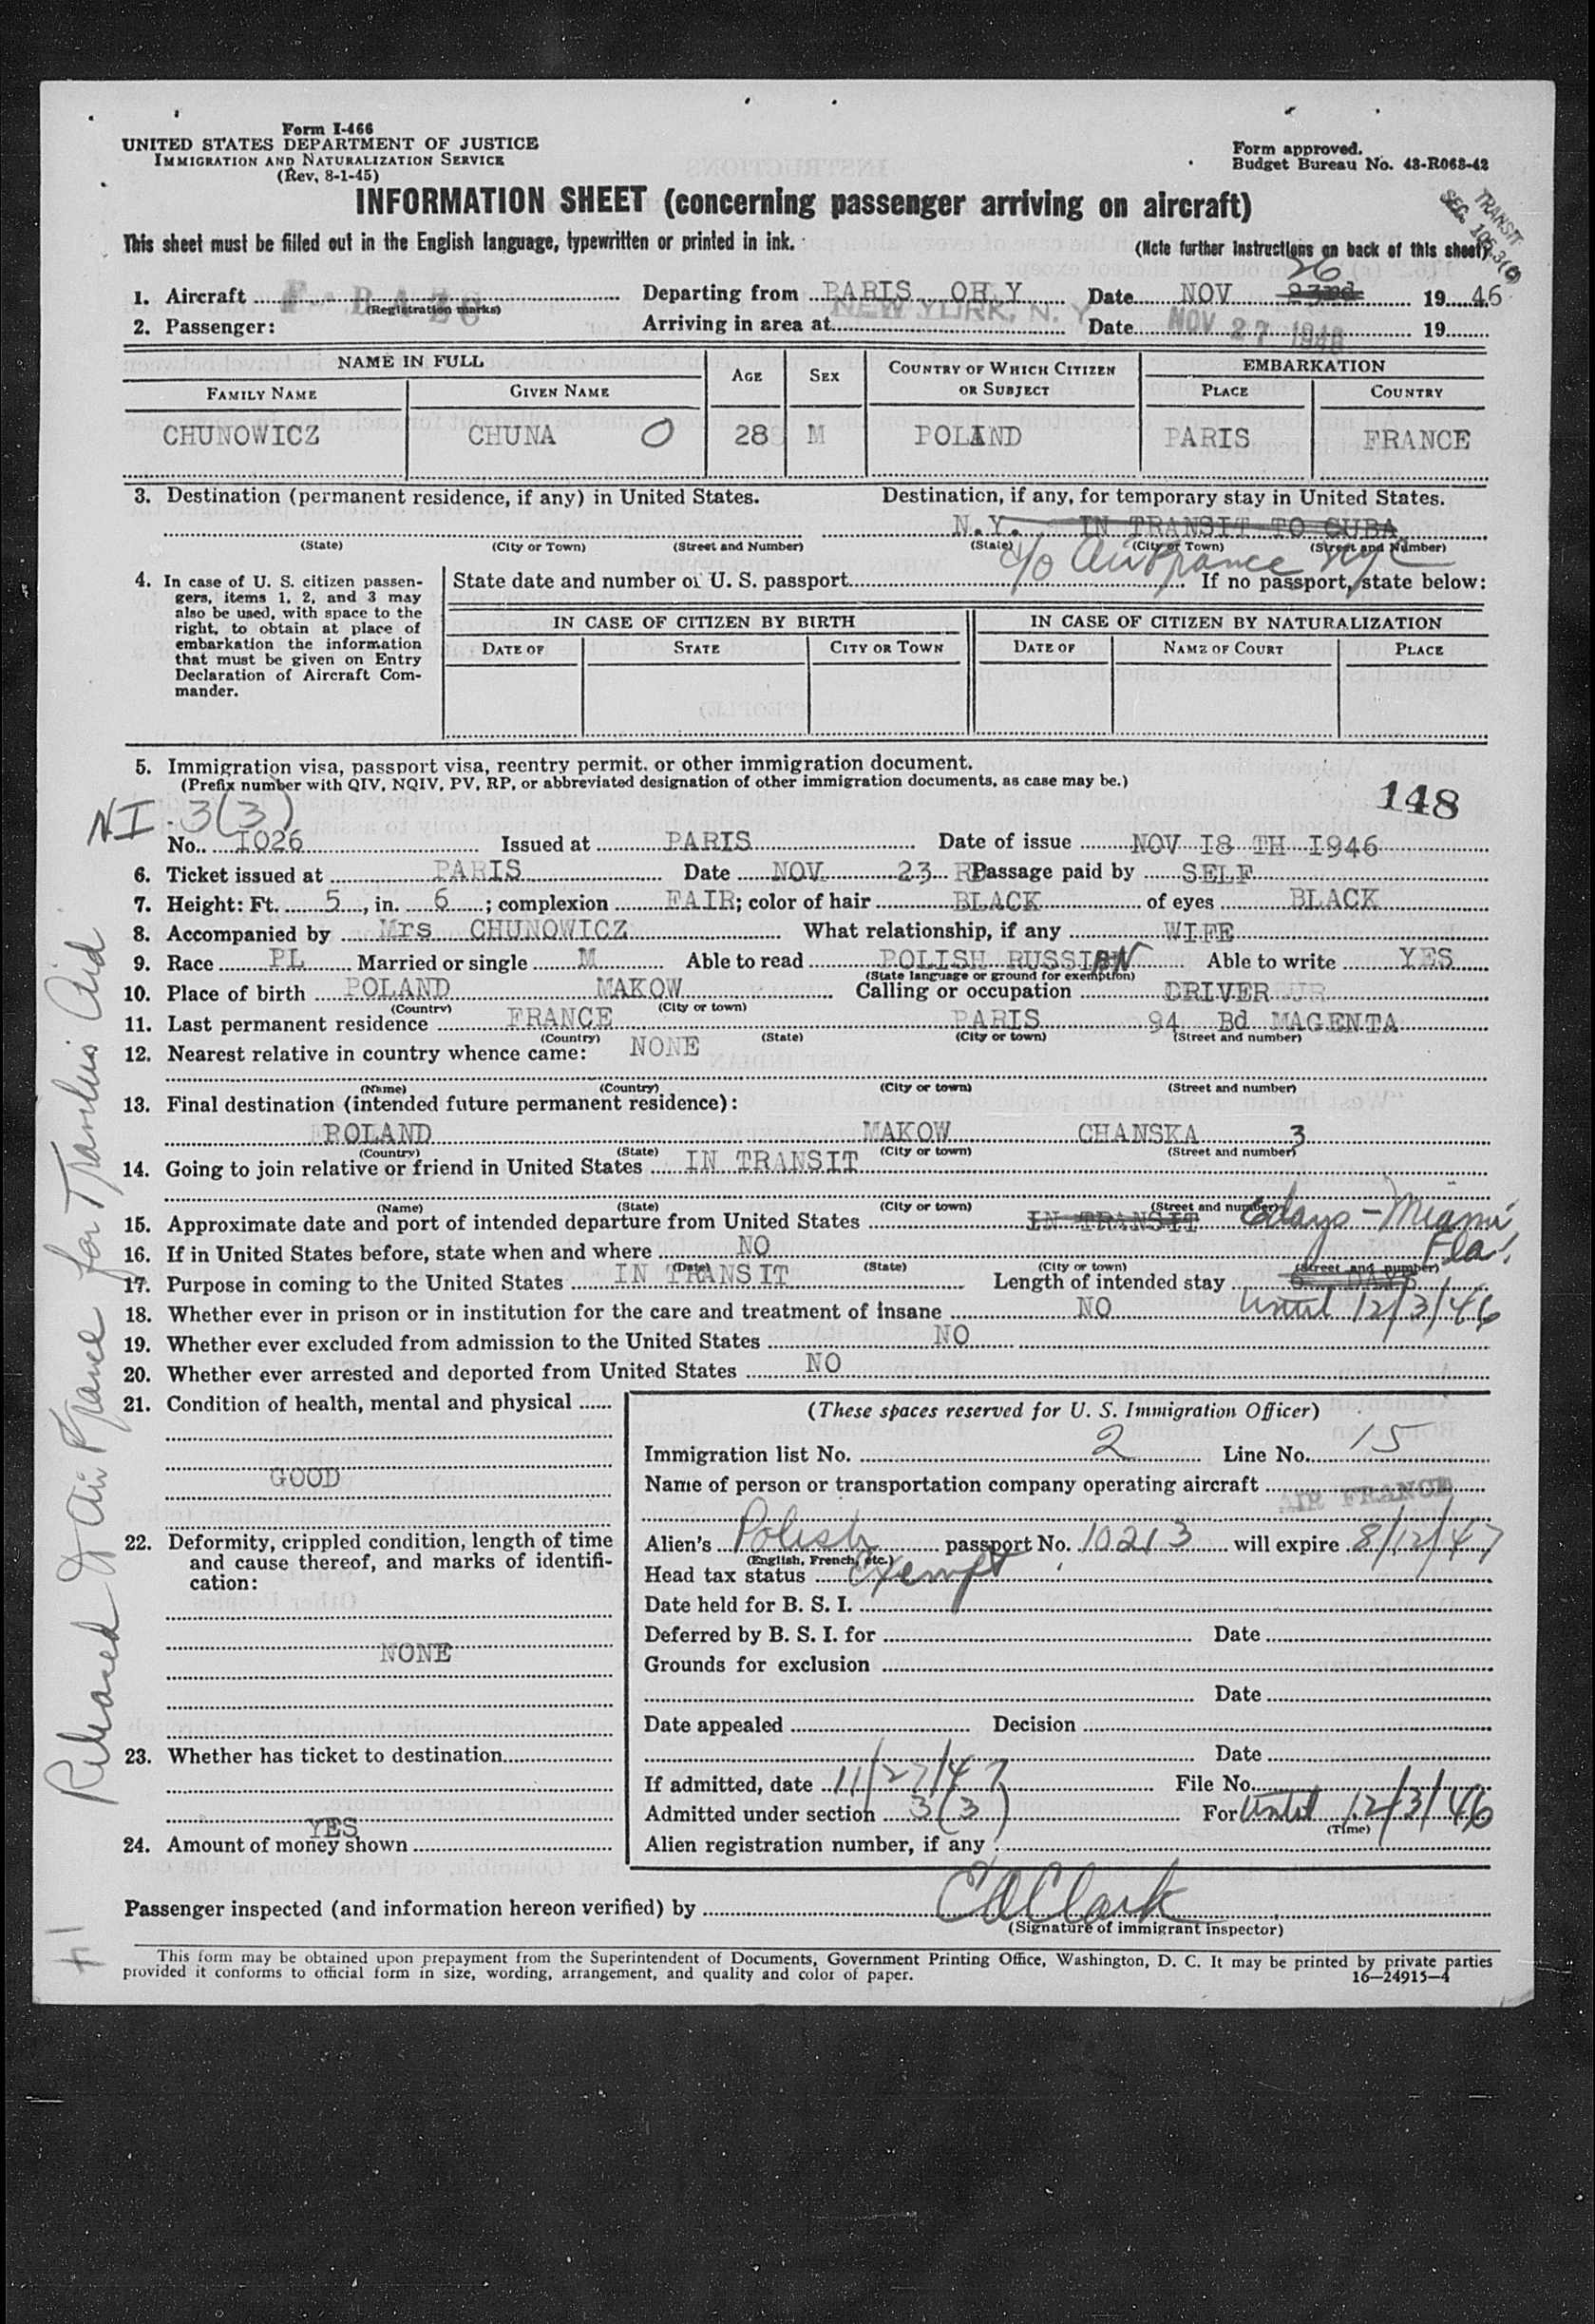 Form I-466
UNITED STATES DEPARTMENT OF JUSTICE
IMMIGRATION AND NATURALIZATION SERVICE
(Rev. 8-1-45)
Form approved.
Budget Bureau No. 43-R068-42
TRANSIT
SEC. 105.3(
INFORMATION SHEET (concerning passenger arriving on aircraft)
This sheet must be filled out in the English language, typewritten or printed in ink.
(Note further instructions on back of this sheet)
26
1. Aircraft F-BAZC Departing from PARIS ORLY Date NOV 23nd 1946
(Registration marks)
2. Passenger: Arriving in area at NEW YORK, N. Y. Date NOV 27 1946 19
NAME IN FULL AGE SEX COUNTRY OF WHICH CITIZEN OR SUBJECT EMBARKATION
FAMILY NAME GIVEN NAME PLACE COUNTRY
CHUNOWICZ CHUNA O 28 M POLAND PARIS FRANCE
3. Destination (permanent residence, if any) in United States. Destination, if any, for temporary stay in United States.
N.Y. IN TRANSIT TO CUBA
(State) (City or Town) (Street and Number) (State) (City or Town) (Street and Number)
c/o Air France NYC
4. In case of U. S. citizen passengers, items 1, 2, and 3 may also be used, with space to the right, to obtain at place of embarkation the information that must be given on Entry Declaration of Aircraft Commander.
State date and number of U. S. passport If no passport, state below:
IN CASE OF CITIZEN BY BIRTH IN CASE OF CITIZEN BY NATURALIZATION
DATE OF STATE CITY OR TOWN DATE OF NAME OF COURT PLACE
5. Immigration visa, passport visa, reentry permit, or other immigration document.
(Prefix number with QIV, NQIV, PV, RP, or abbreviated designation of other immigration documents, as case may be.)
148
NI. 3(3)
No. I026 Issued at PARIS Date of issue NOV I8 TH I946
6. Ticket issued at PARIS Date NOV 23 RD Passage paid by SELF
7. Height: Ft. 5, in. 6; complexion FAIR; color of hair BLACK of eyes BLACK
8. Accompanied by Mrs CHUNOWICZ What relationship, if any WIFE
9. Race PL Married or single M Able to read POLISH RUSSIAN Able to write YES
(State language or ground for exemption)
10. Place of birth POLAND MAKOW Calling or occupation DRIVER
(Country) (City or town)
11. Last permanent residence FRANCE PARIS 94 Bd MAGENTA
(Country) (State) (City or town) (Street and number)
12. Nearest relative in country whence came: NONE
(Name) (Country) (City or town) (Street and number)
13. Final destination (intended future permanent residence):
POLAND MAKOW CHANSKA 3
(Country) (State) (City or town) (Street and number)
14. Going to join relative or friend in United States IN TRANSIT
(Name) (State) (City or town) (Street and number)
15. Approximate date and port of intended departure from United States IN TRANSIT 6days - Miami Fla.
16. If in United States before, state when and where NO
(Date) (State) (City or town) (Street and number)
17. Purpose in coming to the United States IN TRANSIT Length of intended stay 6 DAYS
18. Whether ever in prison or in institution for the care and treatment of insane NO until 12/3/46
19. Whether ever excluded from admission to the United States NO
20. Whether ever arrested and deported from United States NO
21. Condition of health, mental and physical
GOOD
22. Deformity, crippled condition, length of time and cause thereof, and marks of identification:
NONE
23. Whether has ticket to destination
YES
24. Amount of money shown
(These spaces reserved for U. S. Immigration Officer)
Immigration list No. 2 Line No. 15
Name of person or transportation company operating aircraft AIR FRANCE
Alien's Polish passport No. 10213 will expire 8/12/47
(English, French, etc.)
Head tax status Exempt
Date held for B. S. I.
Deferred by B. S. I. for Date
Grounds for exclusion
Date
Date appealed Decision
Date
If admitted, date 11/27/47 File No.
Admitted under section 3(3) For until 12/3/46
(Time)
Alien registration number, if any
Passenger inspected (and information hereon verified) by CAClark
(Signature of immigrant inspector)
This form may be obtained upon prepayment from the Superintendent of Documents, Government Printing Office, Washington, D. C. It may be printed by private parties
provided it conforms to official form in size, wording, arrangement, and quality and color of paper.
16—24915-4
Released to Air France for Aid